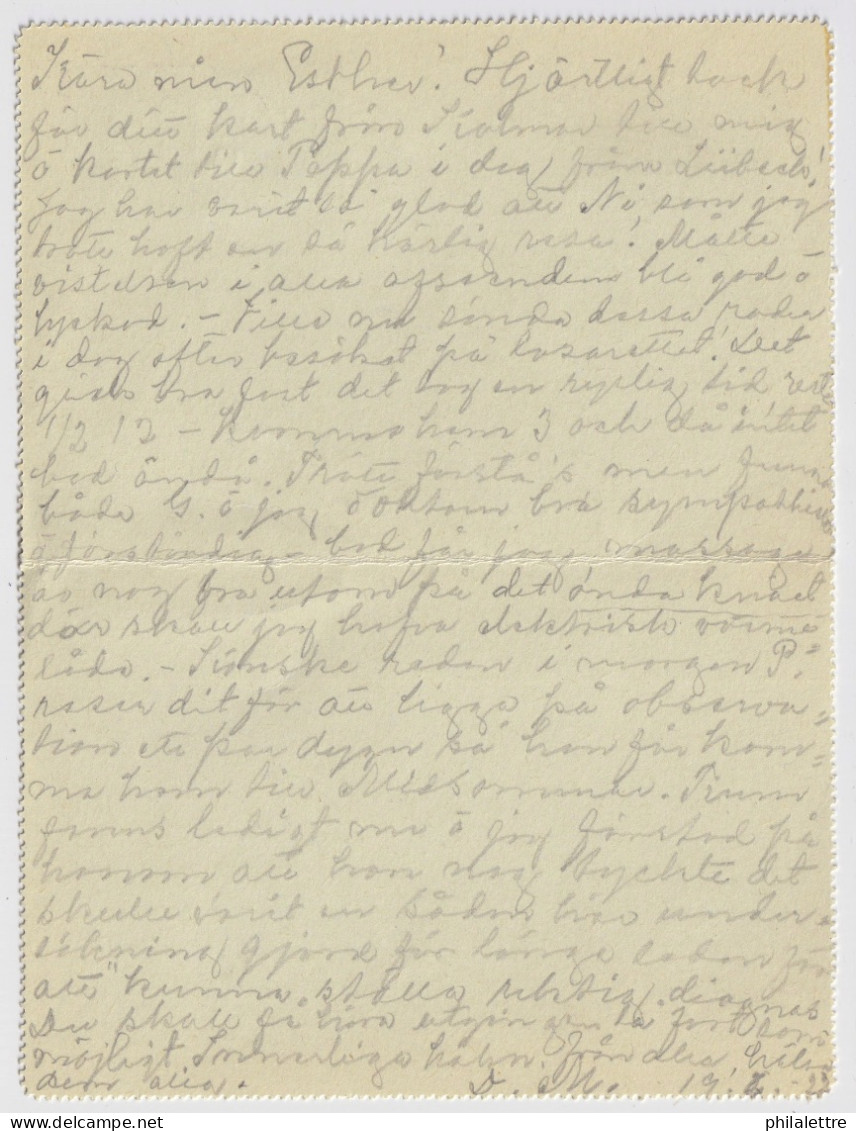 Kära min Esther! Hjärtligt tack
för ditt kort från Kalmar till mig
ö kortet till Pappa i dag från Lübeck!
Jag har varit så glad att Ni, som jag
haft en så härlig resa! Måtte
vistelsen i alla afseenden bli god ö
lyckad. – Vill nu sända dessa rader
i dag efter besöket på lasarettet! Det
gick bra fast det tog en rysligt tid
1/2 12 – komma hem 3 och då intet
bad ändå. Trötta förstås men
både G. ö jag doktorn bra sympathisk
ö förståndig – bad får jag massage
är nog bra utom på det onda knäet
där skall jag hafva elektrisk värme
låda. – Kanske redan i morgon P.
reser dit för att ligga på observa=
tion ett par dygn så han får kom=
ma hem till Midsommar. Rum
fanns ledigt nu ö jag förstod på
honom att han nog tyckte det
skulle varit en sådan här under=
sökning gjord för länge sedan för
att kunna ställa riktig diagnos
Du skall få höra utgången så fort som
möjligt Innerliga hälsn. från alla
dem alla. D. M. 19.
philalettre